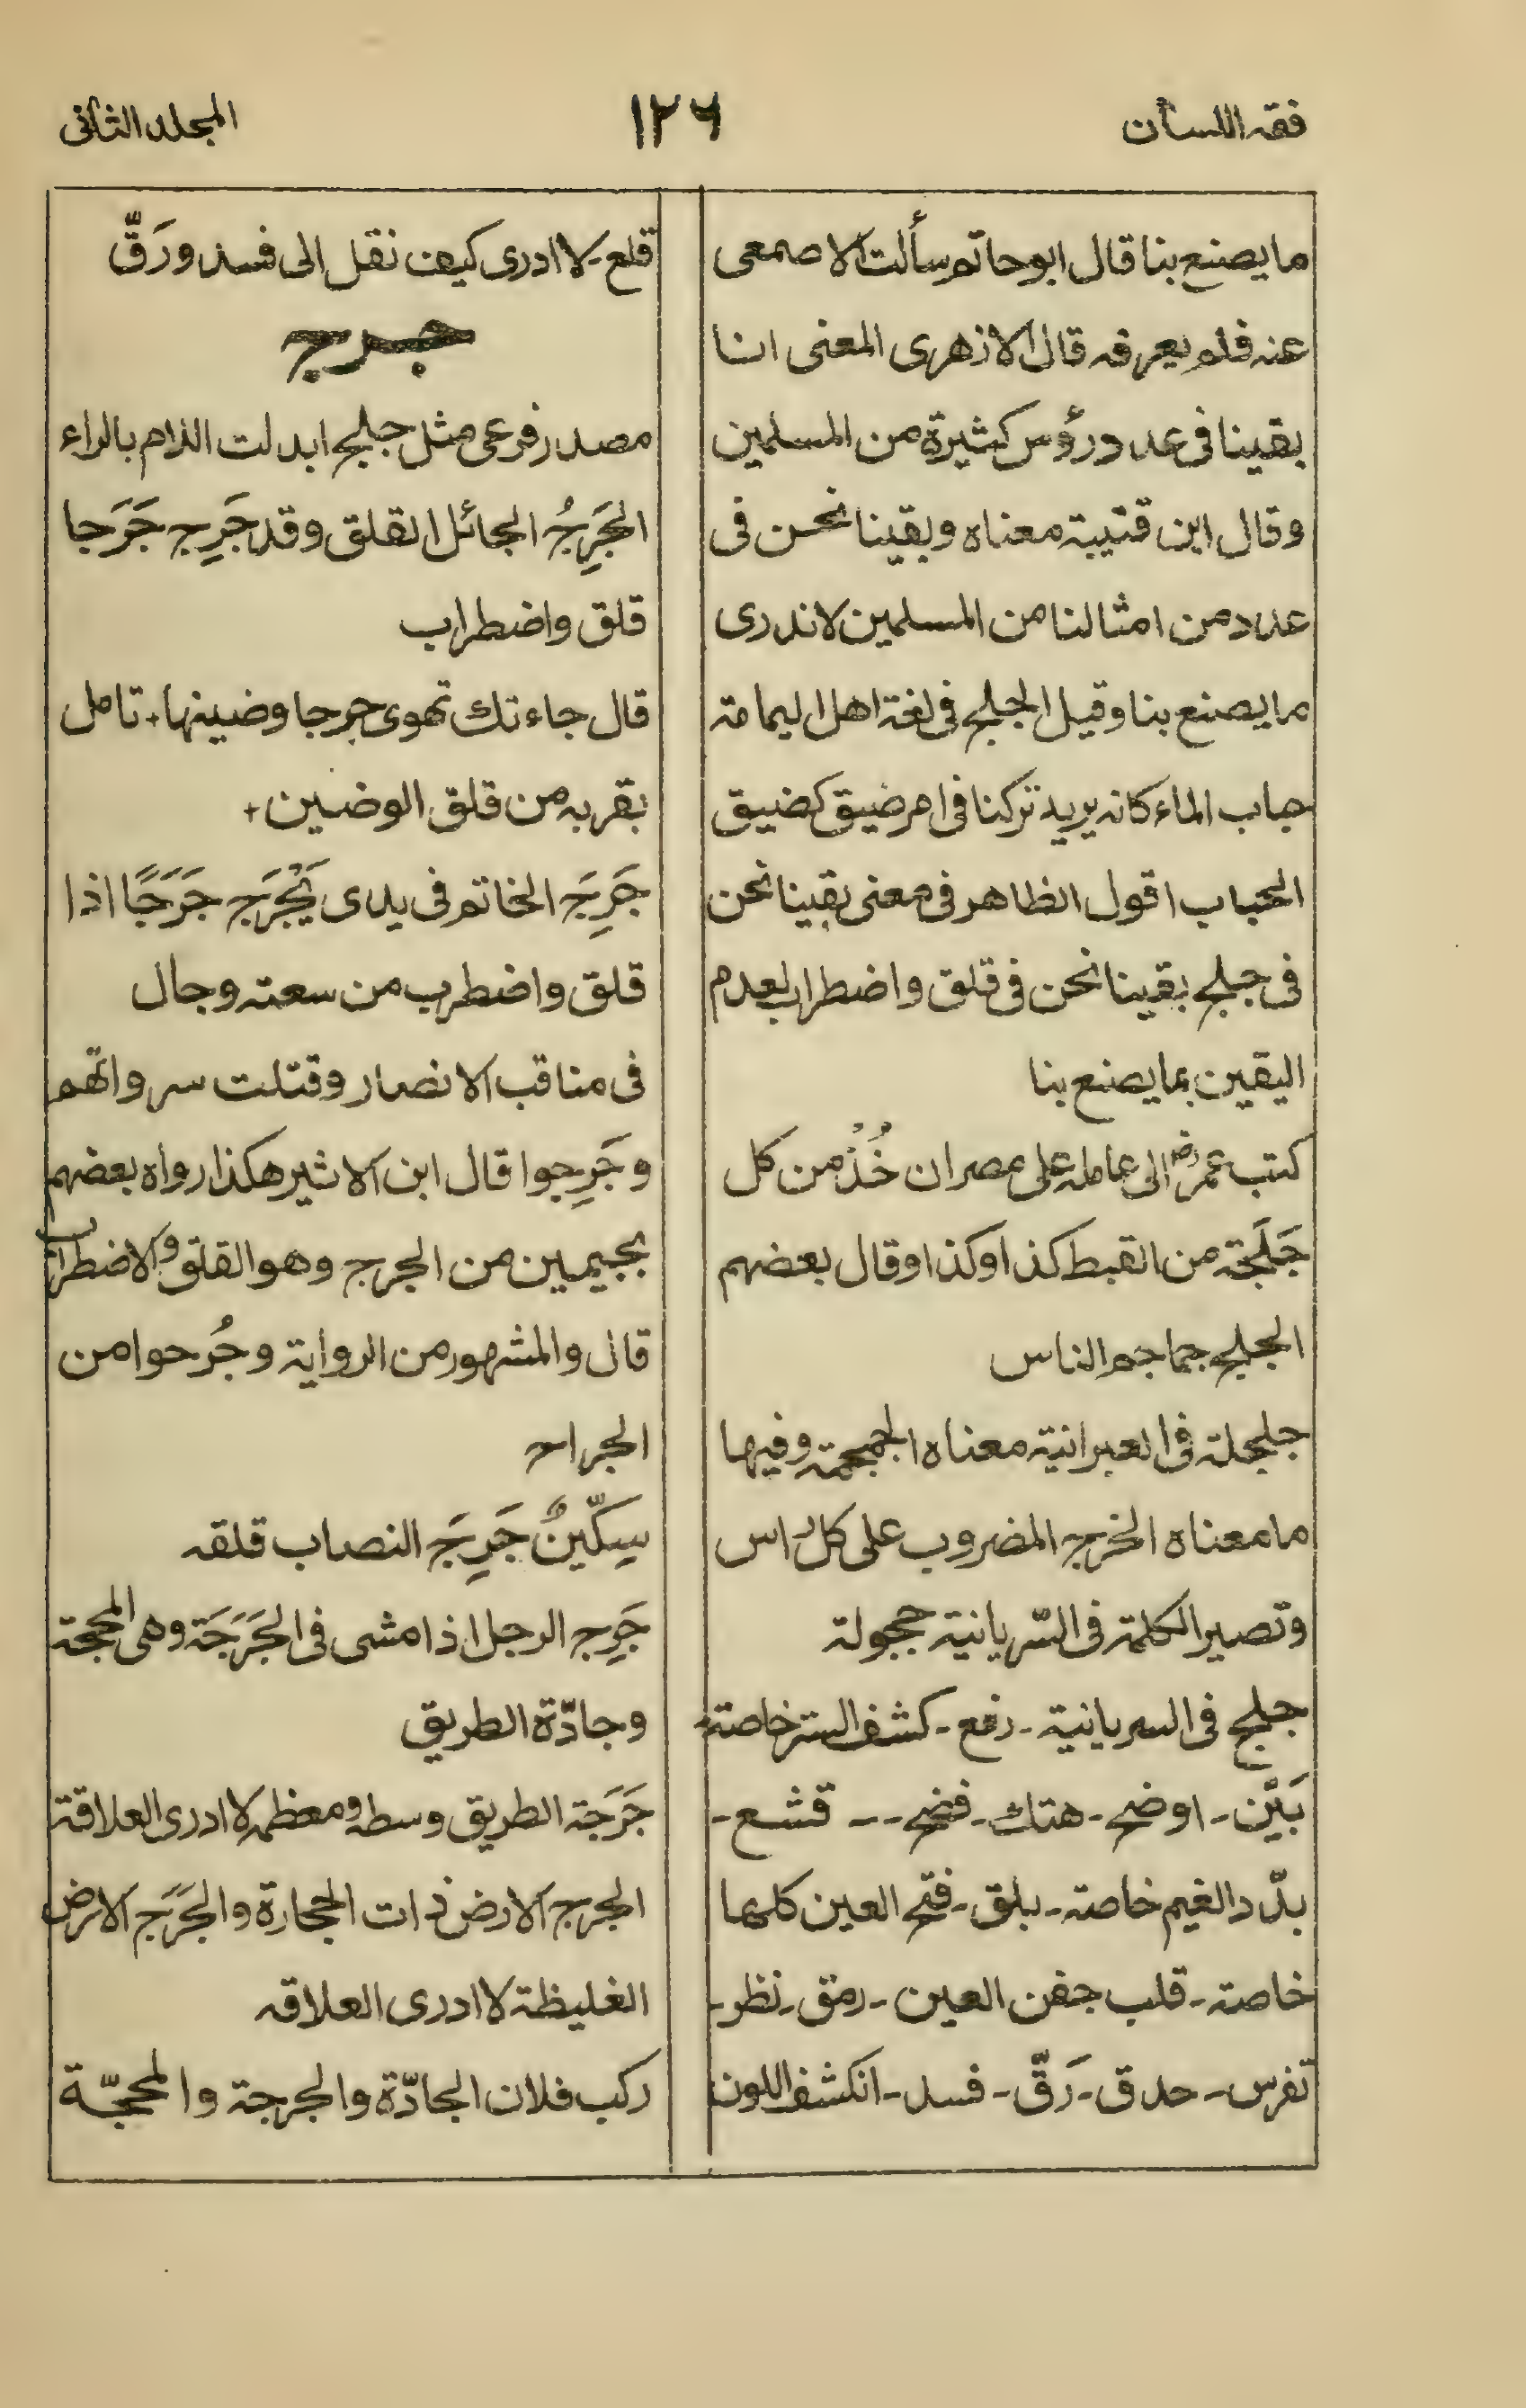 فقه اللسان
١٢٦
المجلد الثانى
ما يصنع بنا قال ابو حاتم سألت الاصمعى
عنه فلم يعرفه قال الازهرى المعنى انا
بقينا فى عدد رؤس كثيرة من المسلمين
وقال ابن قتيبة معناه وبقينا نحن فى
عدد من امثالنا من المسلمين لا ندرى
ما يصنع بنا وقيل الجلج فى لغة اهل اليمامة
حباب الماء كانه يريد تركنا فى امر ضيق كضيق
الحباب اقول الظاهر فى معنى بقينا نحن
فى جلج بقينا نحن فى قلق واضطراب لعدم
اليقين بما يصنع بنا
كتب عمر رض الى عامله على مصر ان خُذْ من كل
جَلَجَة من القبط كذا وكذا وقال بعضهم
الجلج جماجم الناس
جلجلة فى العبرانية معناه الجمجمة وفيها
ما معناه الخرج المضروب على كل راس
وتصير الكلمة فى السّريانية ججولة
جلج فى السريانية - رفع - كشف الستر خاصة -
بَيَّن - اوضح - هتك - فضح - - قشع -
بدّد الغيم خاصة - بلق - فتح العين كليما
خاصة - قلب جفن العين - رمق - نظر -
تفرس - حدق - رَقّ - فسد - انكشف اللون
قلع - لا ادرى كيف نقل الى فسد ورَقّ
جرج
مصدر فرعى مثل جلج ابدلت اللام بالراء
الجَرِجُ الجائل القلق وقد جَرِج جَرَجا
قلق واضطراب
قال جاءتك تهوى جرجا وضينها + تامل
بقربه من قلق الوضين +
جَرِجَ الخاتم فى يدى يَجْرَج جَرَجًا اذا
قلق واضطرب من سعته وجال
فى مناقب الانصار وقتلت سرواتهم
وجَرِجوا قال ابن الاثير هكذا رواه بعضهم
بجيمين من الجرج وهو القلق والاضطراب
قال والمشهور من الرواية وجُرحوا من
الجراح
سِكّينٌ جَرِجَ النصاب قلقه
جَرِج الرجل اذا مشى فى الجَرَجَة وهى المحجة
وجادّة الطريق
جَرَجَة الطريق وسطه ومعظمه لا ادرى العلاقة
الجرج الارض ذات الحجارة والجَرَج الارض
الغليظة لا ادرى العلاقه
ركب فلان الجادّة والجرجة والمحجّة